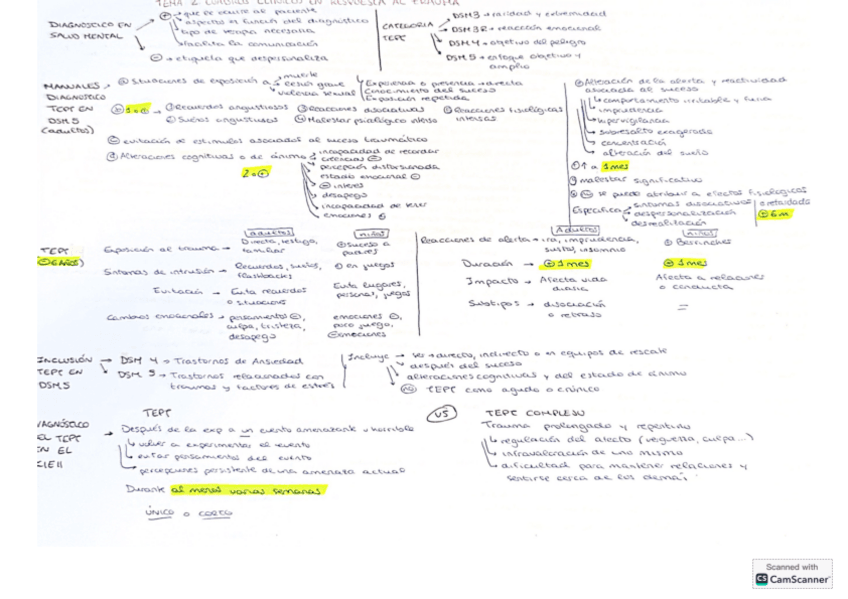 TEMA 2 CUADRO CLÍNICO EN RESPUESTA AL TRAUMA
DIAGNÓSTICO EN SALUD MENTAL
⊕ que le ocurre al paciente
aspectos es función del diagnóstico
tipo de terapia necesaria
facilita la comunicación
⊖ → etiqueta que despersonaliza
CATEGORIA TEPT
DSM 3 → raridad y extremidad
DSM 3R → reacción emocional
DSM 4 → objetivo del peligro
DSM 5 → enfoque objetivo y amplio
MANUALES DIAGNOSTICO TEPT EN DSM 5 (adultos)
Ⓐ Situaciones de exposición a
muerte
lesión grave
violencia sexual
Experiencia o presencia directa
Conocimiento del suceso
Exposición repetida
Ⓑ 1 o ⊕ → ① Recuerdos angustiosos ③ Reacciones disociativas ⑤ Reacciones fisiológicas intensas
② Sueños angustiosos ④ Malestar psicológico intenso
Ⓒ evitación de estímulos asociados al suceso traumático
Ⓓ Alteraciones cognitivas o de ánimo
2 o ⊕
incapacidad de recordar
creencias ⊖
percepción distorsionada
estado emocional ⊖
⊖ interés
desapego
incapacidad de tener emociones ⊕
Ⓔ Alteración de la alerta y reactividad asociada al suceso
comportamiento irritable y furia
imprudencia
hipervigilancia
sobresalto exagerado
concentración
alteración del sueño
Ⓕ ↑ a 1 mes
malestar significativo
NO se puede atribuir a efectos fisiológicos
Especifica
síntomas disociativos
despersonalización
desrealización
o retardada
⊕ 6 m
TEPT (⊖ 6 AÑOS)
adultos
niños
Exposición al trauma → Directa, testigo, familiar
⊕ suceso a padres
Síntomas de intrusión → Recuerdos, sueños, flashbacks
⊕ en juegos
Evitación → Evita recuerdos o situaciones
Evita lugares, personas, juegos
Cambios emocionales → pensamientos ⊖, culpa, tristeza, desapego
emociones ⊖, poco juego, ⊖ emociones
Adultos
niños
Reacciones de alerta → ira, imprudencia, susto, insomnio
⊕ Berrinches
Duración → ⊕ 1 mes
⊕ 1 mes
Impacto → Afecta vida diaria
Afecta a relaciones o conducta
Subtipos → disociación o retraso
=
INCLUSIÓN TEPT EN DSM 5
DSM 4 → Trastornos de Ansiedad
DSM 5 → Trastornos relacionados con traumas y factores de estrés
Incluye → ser → directo, indirecto o en equipos de rescate
después del suceso
alteraciones cognitivas y del estado de ánimo
NO TEPT como agudo o crónico
DIAGNÓSTICO DEL TEPT EN EL CIE 11
TEPT
Después de la exp a un evento amenazante u horrible
volver a experimentar el evento
evitar pensamientos del evento
percepciones persistente de una amenaza actual
Durante al menos varias semanas
ÚNICO o CORTO
VS
TEPT COMPLEJO
Trauma prolongado y repetitivo
regulación del afecto (vegüenza, culpa...)
infravaloración de uno mismo
dificultad para mantener relaciones y sentirse cerca de los demás
Scanned with
CS CamScanner